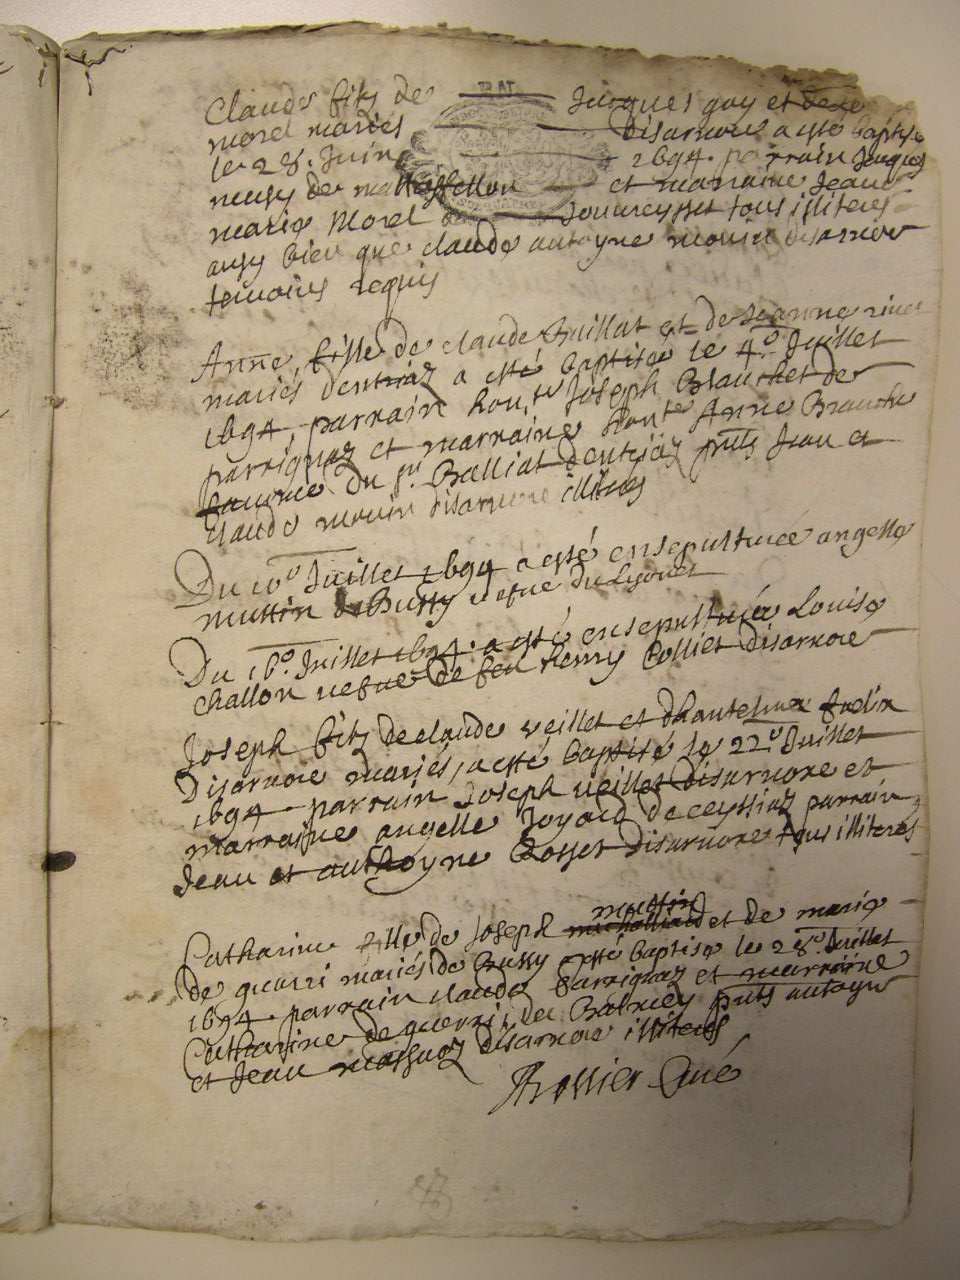 Claude fils de Jacques guy et
morel mariés Disarnore a esté baptisé
le 28. Juin 1694. parrain Jacques
musy de mattaffellon et marraine Jeane
marie Morel de tous illiteres
ausy bien que claude antoyne monin disarnore
temoins requis
Anne, fille de claude Buillat et de Jeanne
mariés dentriaz a esté baptisée le 4.e Juillet
1694 parrain hon.te Joseph Blanchet de
parrignaz et marraine hon.te Anne
femme du s.r Balliat dentriaz pnts Jean et
claude monin disarnore illiteres
Du 10.e Juillet 1694 a esté ensepulturée angelle
muttin de Bussy vefue du Lyonet
Du 16.e Juillet 1694. a esté ensepulturée Louise
challon vefue de feu henry Colliet disarnore
Joseph fils de claude veillet et dhantelme
Disarnore mariés, a esté baptisé le 22.e Juillet
1694 parrain Joseph veillet disarnore et
marraine angelle Joyard de ceyssiaz parrain
Jean et anthoyne Rosset disarnore tous illiteres
muttin
Catharine fille de Joseph et de marie
de quarri mariés de Bussy a esté baptisée le 28.e Juillet
1694 parrain claude parrignaz et marraine
Catharine de querri, de pnts antoyne
et Jean disarnore illiteres
Rollier Curé